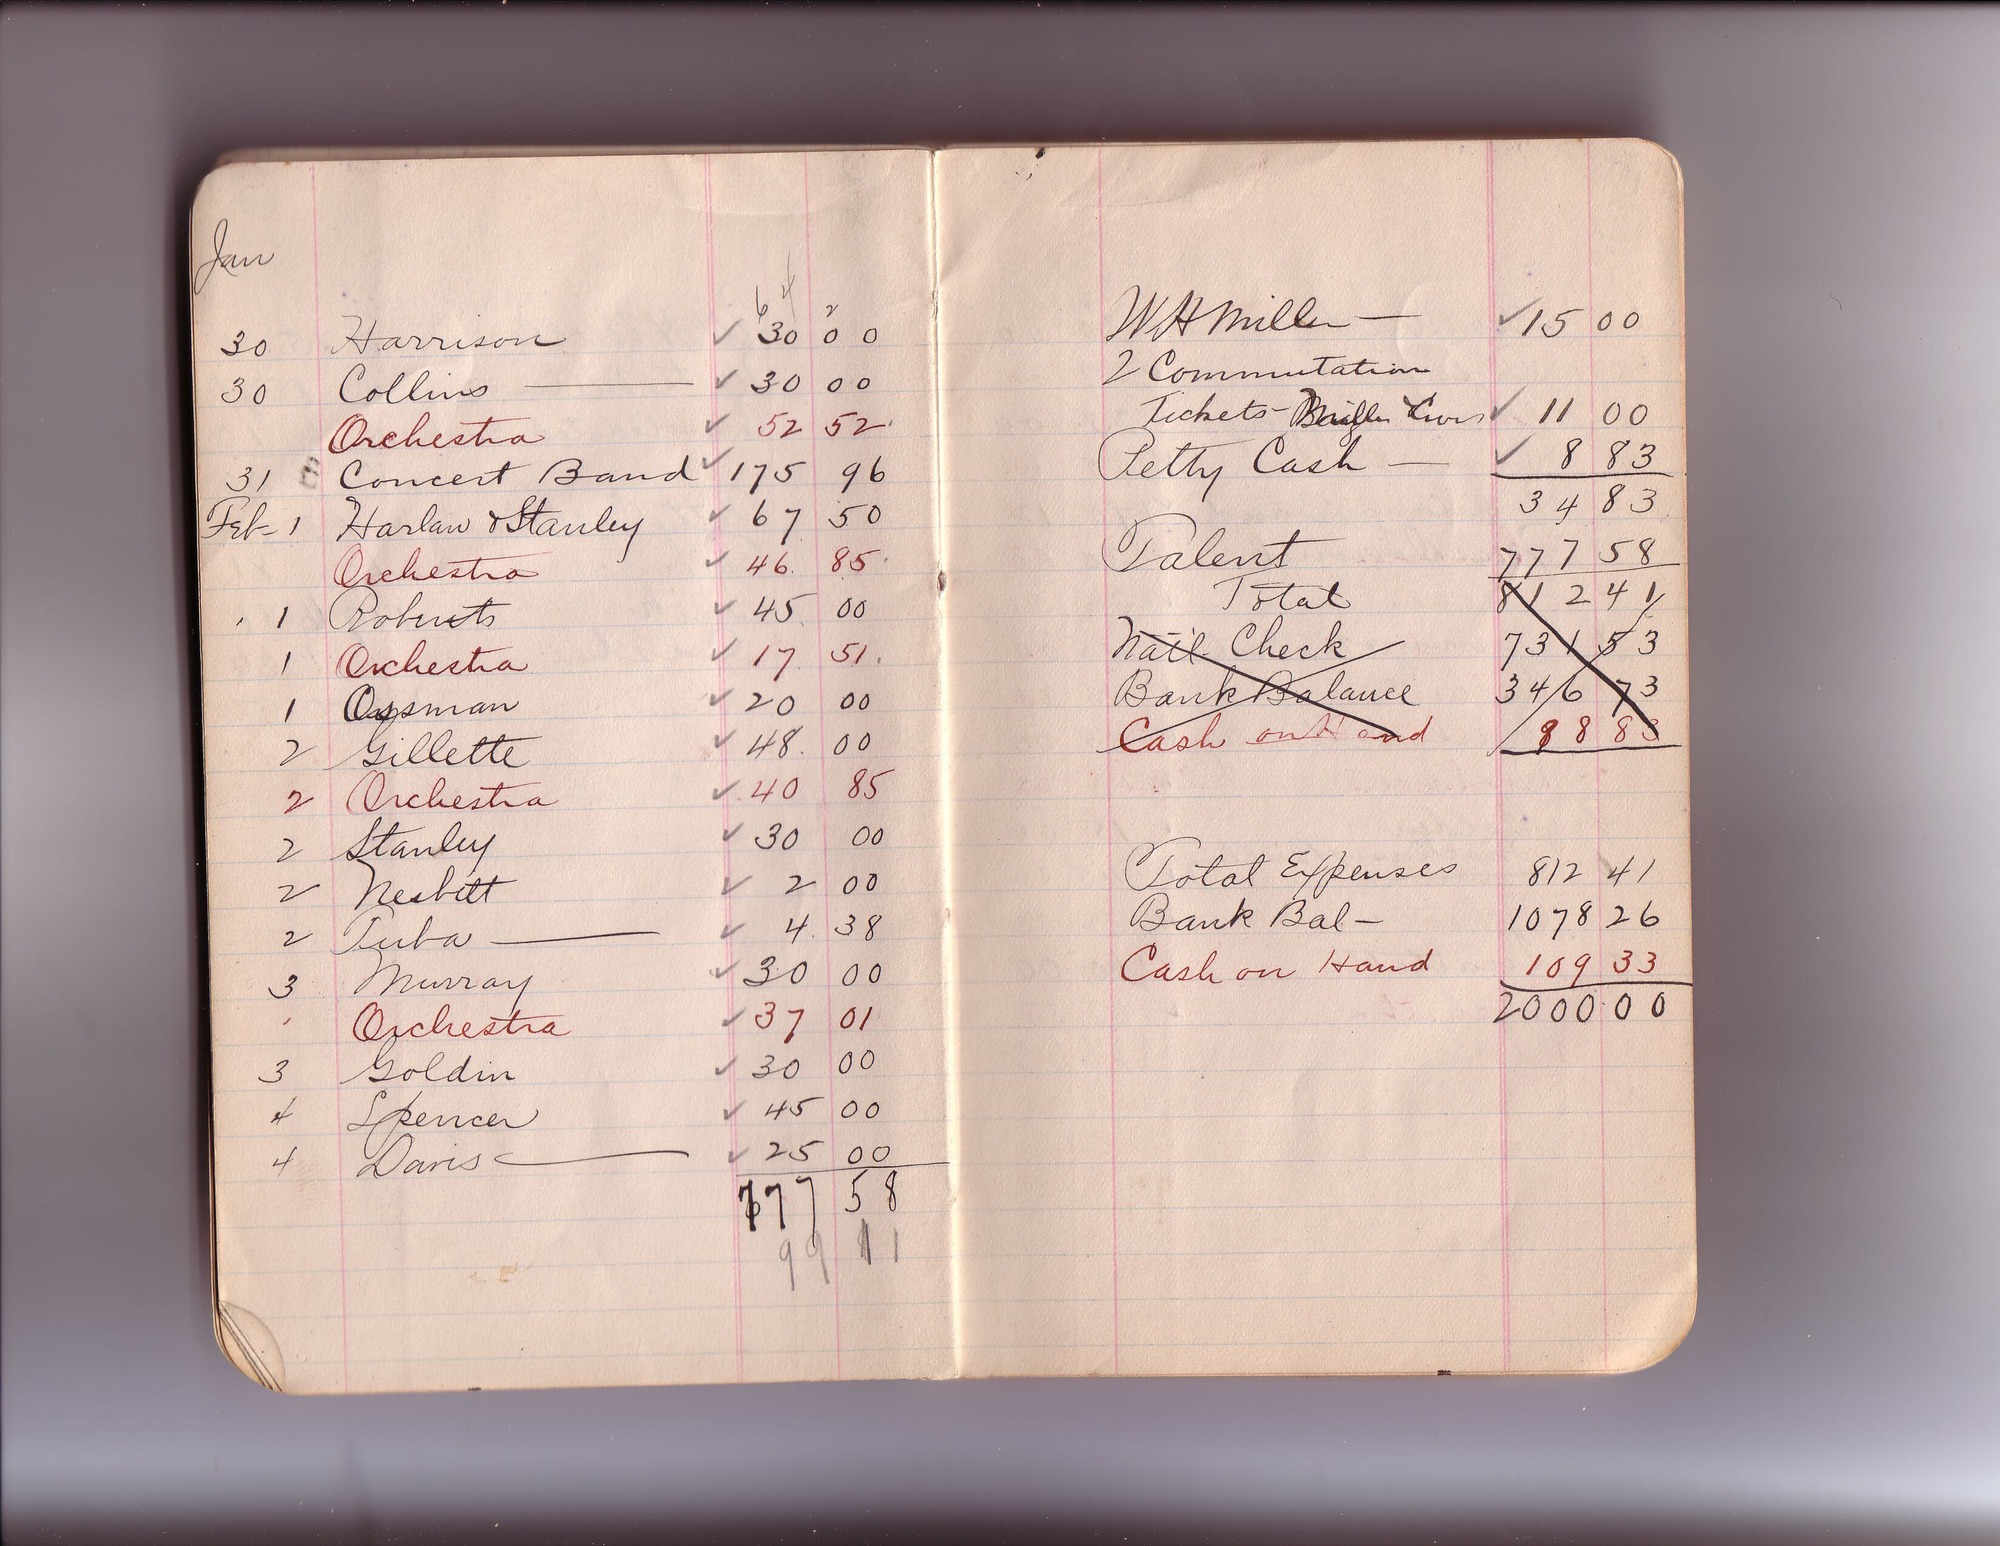 Jan
6 4 2
30 Harrison ✓ 30 00
30 Collins — ✓ 30 00
Orchestra ✓ 52 52
31 Concert Band ✓ 175 96
Feb- 1 Harlan & Stanley ✓ 67 50
Orchestra ✓ 46. 85
1 Roberts ✓ 45 00
1 Orchestra ✓ 17 51.
1 Ossman ✓ 20 00
2 Gillette ✓ 48. 00
2 Orchestra ✓ 40 85
2 Stanley ✓ 30 00
2 Nesbitt ✓ 2 00
2 Tuba — ✓ 4. 38
3 Murray ✓ 30 00
Orchestra ✓ 37 01
3 Goldin ✓ 30 00
4 Spencer ✓ 45 00
4 Davis — ✓ 25 00
777 58
99 11
W H Miller — ✓ 15 00
2 Commutation
Tickets - ✓ 11 00
Petty Cash — ✓ 8 83
34 83
Talent 777 58
Total 812 41
Nat'l Check 731 53
Bank Balance 346 73
Cash on Hand 88 83
Total Expenses 812 41
Bank Bal — 1078 26
Cash on Hand 109 33
2000 00